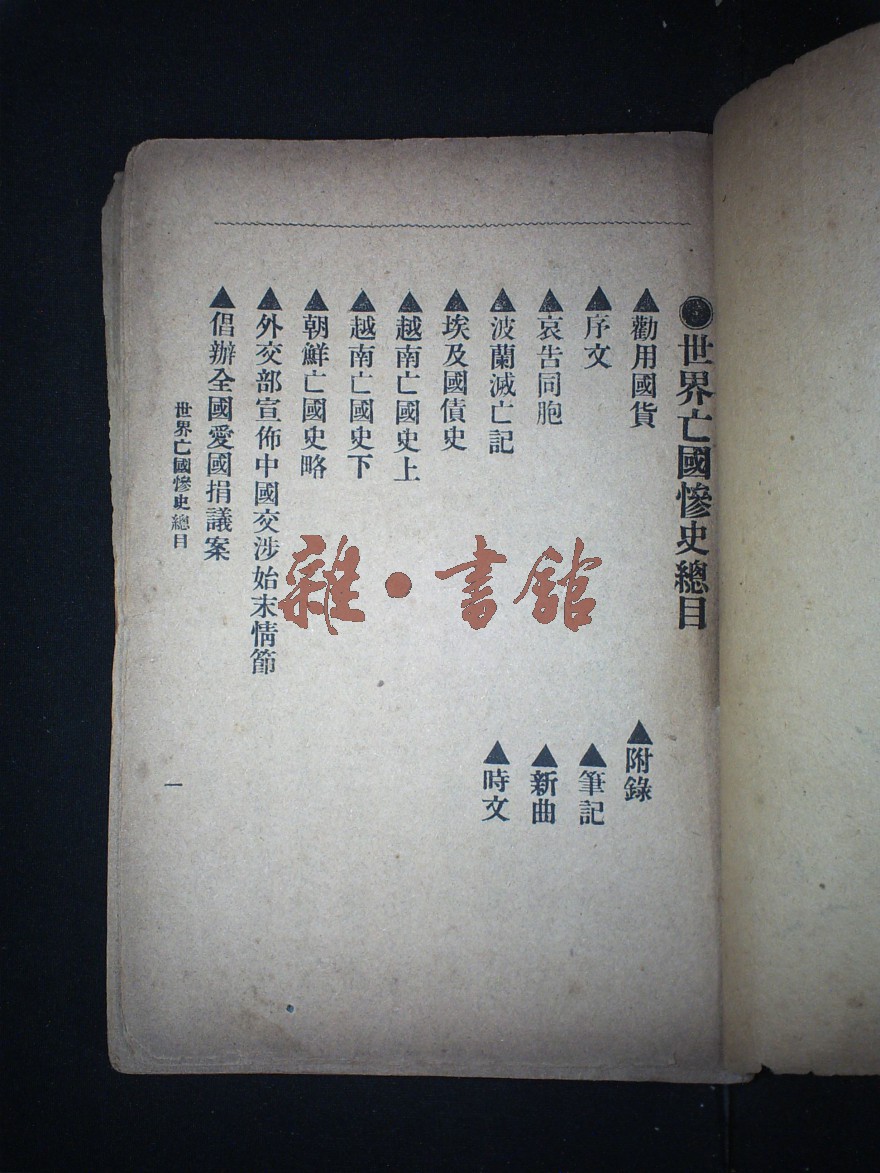 ●世界亡國慘史總目
▲勸用國貨
▲序文
▲哀告同胞
▲波蘭滅亡記
▲埃及國債史
▲越南亡國史上
▲越南亡國史下
▲朝鮮亡國史略
▲外交部宣佈中國交涉始末情節
▲倡辦全國愛國捐議案
▲附錄
▲筆記
▲新曲
▲時文
世界亡國慘史總目
一
雜·書館